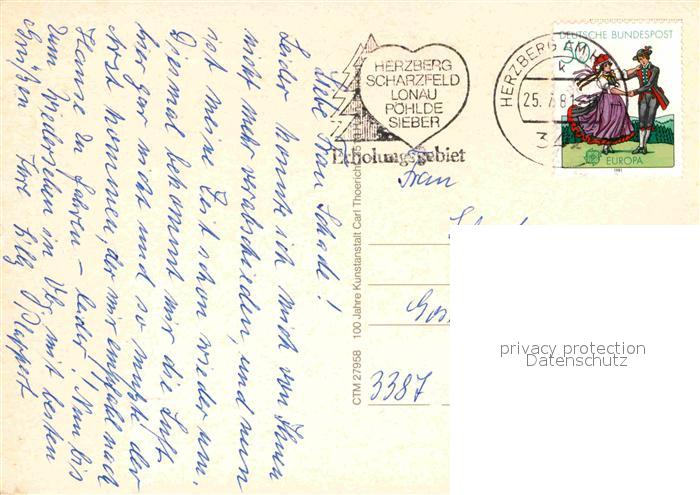 Liebe Frau Schade!
Leider konnte ich mich von Ihnen
nicht mehr verabschieden, und nun
ist meine Zeit schon wieder um.
Diesmal bekommt mir die Luft
hier gar nicht und so mußte der
Arzt kommen, der mir empfahl nach
Hause zu fahren – leider! Nun bis
zum Wiedersehen in Vbg mit besten
Grüßen Ihre Lilly
HERZBERG
SCHARZFELD
LONAU
PÖHLDE
SIEBER
Erholungsgebiet
HERZBERG AM H
25.7.81
DEUTSCHE BUNDESPOST
50
EUROPA
1981
CTM 27958 100 Jahre Kunstanstalt Carl Thoerich
Frau
Gos
3387
privacy protection
Datenschutz